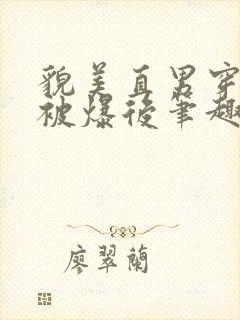 貌美直男穿
被爆後筆趣
廖翠蘭